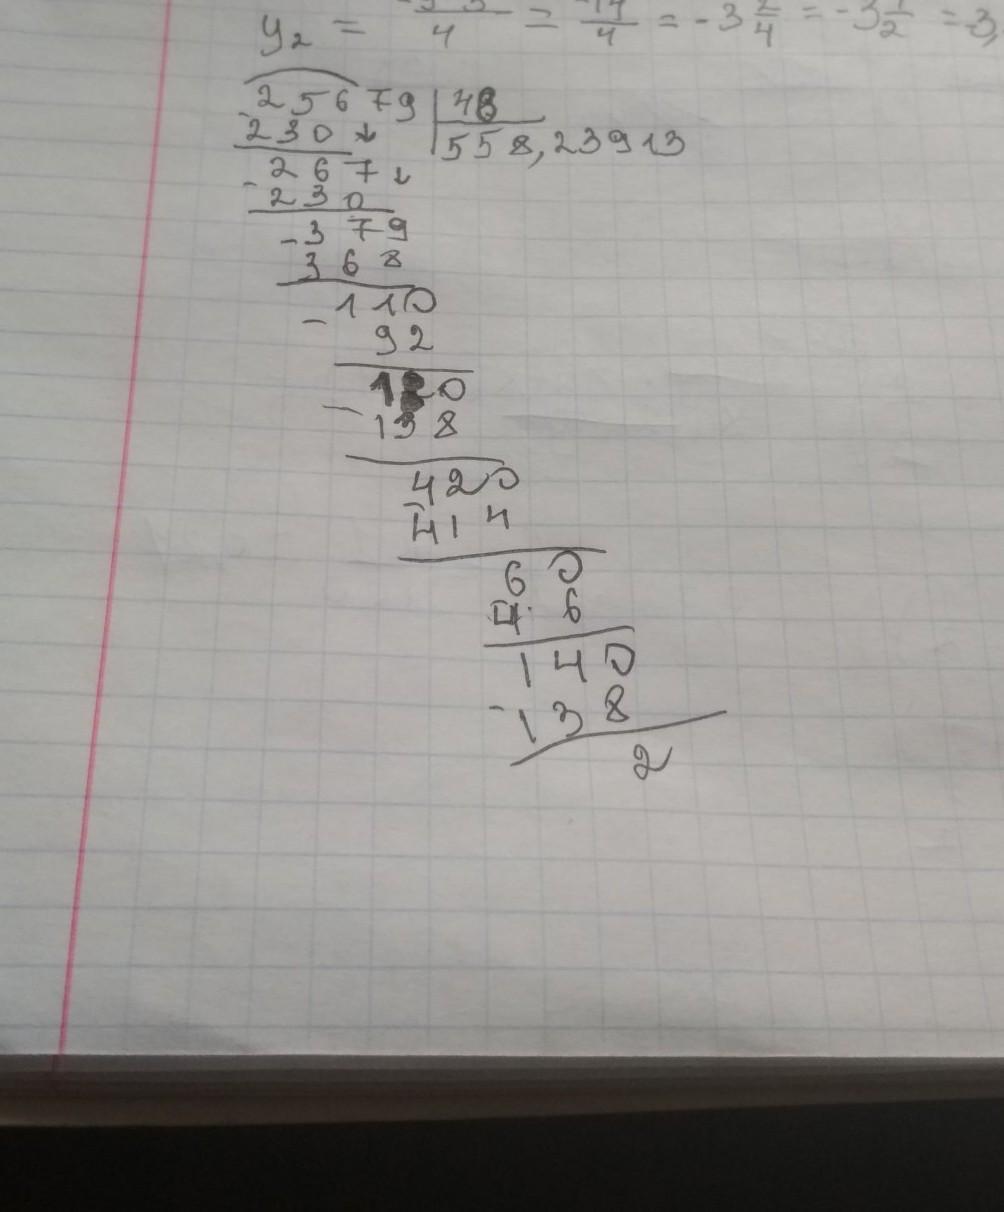 y₂ = /4 = -14/4 = -3 2/4 = -3 1/2 = -3,
25679 | 48
230 | 558,23913
267
- 230
- 379
368
110
- 92
180
- 138
420
- 414
60
- 46
140
- 138
2